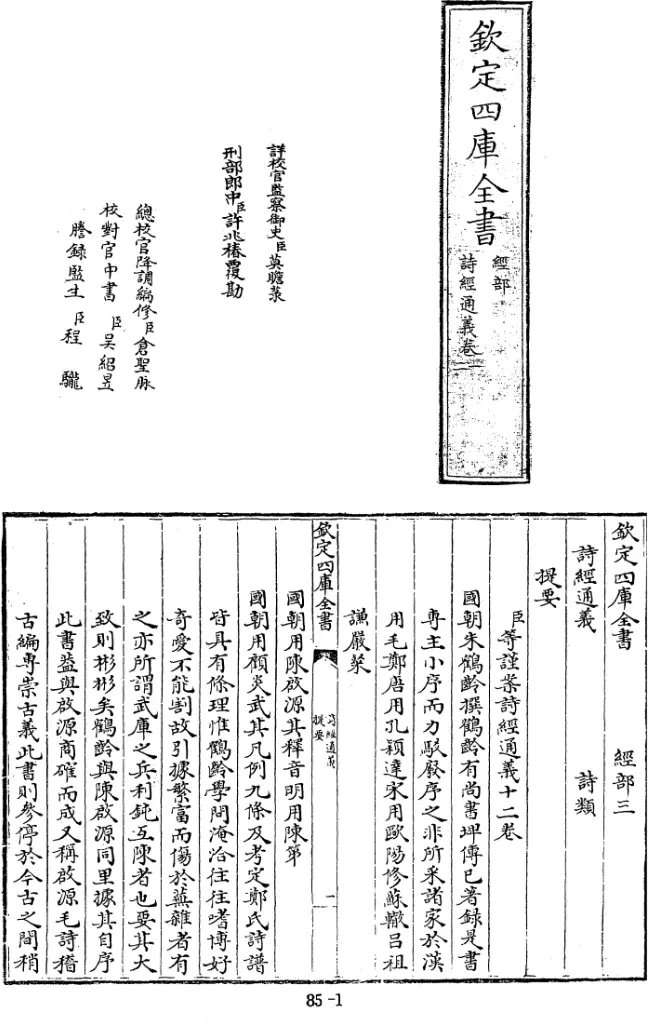 欽定四庫全書
經部
詩經通義卷一
詳校官監察御史臣莫瞻菉
刑部郎中臣許兆椿覆勘
總校官降調編修臣倉聖脉
校對官中書臣吳紹昱
謄錄監生臣程䮾
欽定四庫全書 經部三
詩經通義 詩類
提要
臣等謹案詩經通義十二卷
國朝朱鶴齡撰鶴齡有尚書埤傳已著錄是書
専主小序而力駁廢序之非所采諸家於漢
用毛鄭唐用孔穎達宋用歐陽修蘇轍呂祖
謙嚴粲
欽定四庫全書
詩經通義
提要
一
國朝用陳啟源其釋音明用陳第
國朝用顧炎武其凡例九條及考定鄭氏詩譜
皆具有條理惟鶴齡學問淹洽往往嗜博好
奇愛不能割故引據繁富而傷於蕪雜者有
之亦所謂武庫之兵利鈍互陳者也要其大
致則彬彬矣鶴齡與陳啟源同里據其自序
此書益與啟源商確而成又稱啟源毛詩稽
古編専崇古義此書則參停於今古之間稍
85-1